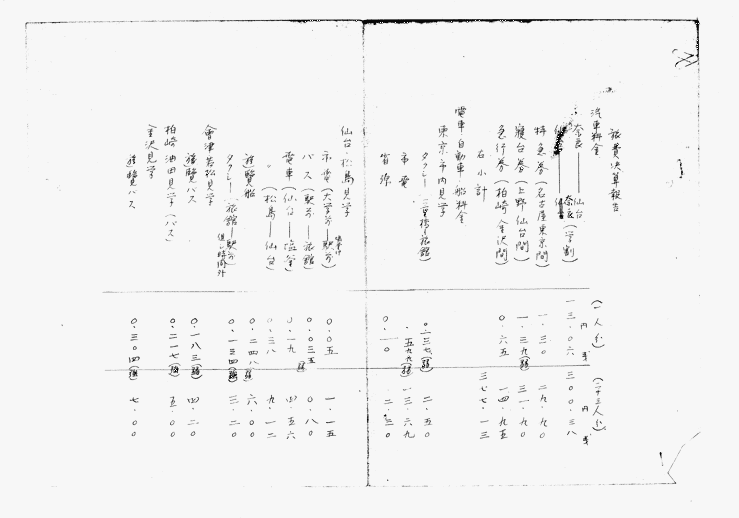 旅費決算報告
(一人分) (二十三人分)
汽車料金 円 円
奈良——仙台 奈良(学割) 一三・〇六 三〇〇・三八
特急券(名古屋東京間) 一・三〇 二九・九〇
寝台券(上野仙台間) 一・三九 三一・九〇
急行券(柏崎金沢間) 〇・六五 一四・九五
右小計 三七七・一三
電車自動車船料金
東京市内見学
タクシー 〇・二三七 二・五〇
市電 ・五九九 一三・六九
省線 〇・一〇 二・三〇
仙台・松島見学
市電(大学前—駅前) 〇・〇五 一・一五
バス(駅前—旅館) 〇・〇三五 〇・八〇
電車(仙台—塩釜) 〇・一九 四・五六
〃(松島—仙台) 〇・三八 九・一二
遊覧船 〇・二四八 六・〇〇
タクシー(旅館—駅前)但し時間外 〇・一三四 三・二〇
會津若松見学
遊覧バス 〇・一八三 四・二〇
柏崎油田見学(バス) 〇・二一七 五・〇〇
金沢見学
遊覧バス 〇・三〇四 七・〇〇